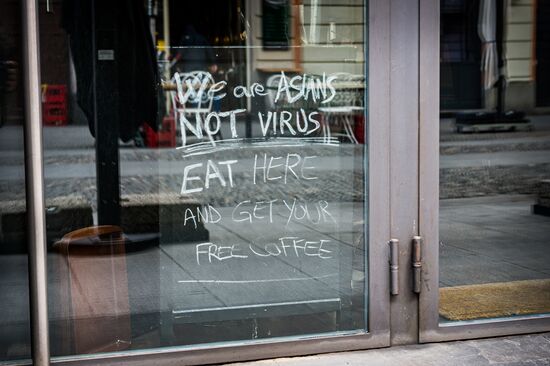 We are ASIANS
NOT VIRUS
EAT HERE
AND GET YOUR
FREE COFFEE